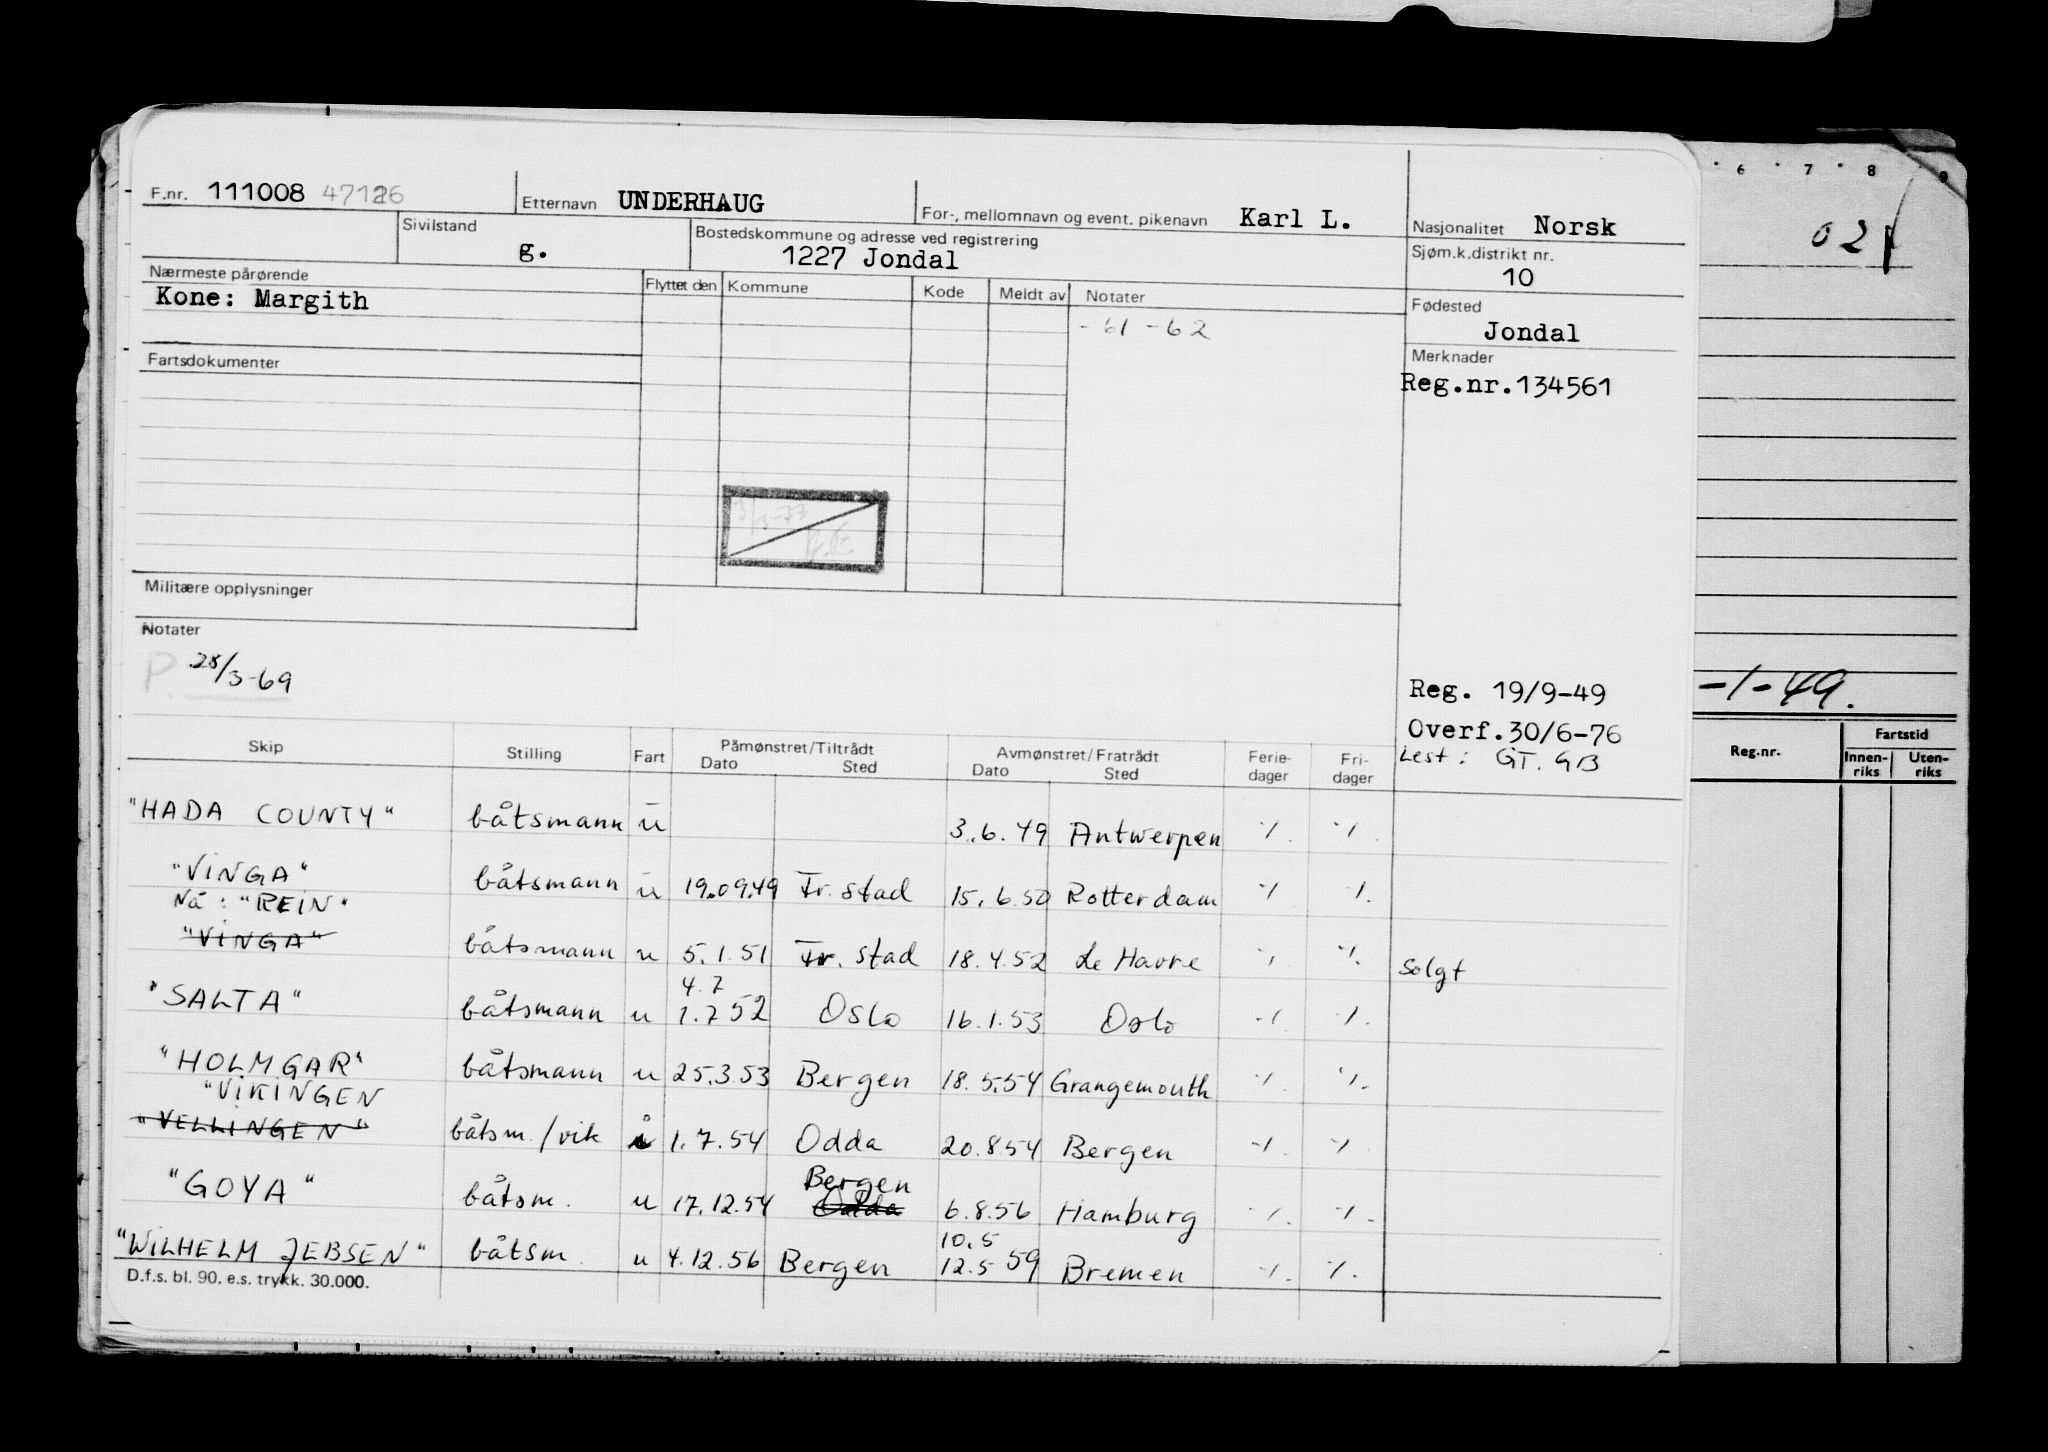 F.nr. 111008 47126 Etternavn UNDERHAUG For-, mellomnavn og event. pikenavn Karl L. Nasjonalitet Norsk
Sivilstand g. Bostedskommune og adresse ved registrering 1227 Jondal Sjøm.k.distrikt nr. 10
Nærmeste pårørende Flyttet den Kommune Kode Meldt av Notater Fødested
Kone: Margith - 61 - 62 Jondal
Fartsdokumenter Merknader
Reg.nr.134561
Militære opplysninger
Notater
P 28/3-69
Reg. 19/9-49
Overf.30/6-76
Lest: GT. GB
Skip Stilling Fart Påmønstret/Tiltrådt Avmønstret/Fratrådt Ferie- Fri-
Dato Sted Dato Sted dager dager
"HADA COUNTY" båtsmann u 3.6.49 Antwerpen ·/. ·/.
"VINGA" båtsmann u 19.09.49 Fr.stad 15.6.50 Rotterdam ·/. ·/.
Nå: "REIN"
"VINGA" båtsmann u 5.1.51 Fr.stad 18.4.52 Le Havre ·/. ·/. Solgt
4.7
"SALTA" båtsmann u 1.7 52 Oslo 16.1.53 Oslo ·/. ·/.
"HOLMGAR" båtsmann u 25.3.53 Bergen 18.5.54 Grangemouth ·/. ·/.
"VIKINGEN
"VELLINGEN" båtsm./vik 1.7.54 Odda 20.8.54 Bergen ·/. ·/.
Bergen
"GOYA" båtsm. u 17.12.54 Odda 6.8.56 Hamburg ·/. ·/.
10.5
"WILHELM JEBSEN" båtsm. u 4.12.56 Bergen 12.5 59 Bremen ·/. ·/.
D.f.s. bl. 90. e.s. trykk. 30.000.
6 7 8 9
02
-1-49.
Reg.nr. Fartstid
Innen- Uten-
riks riks